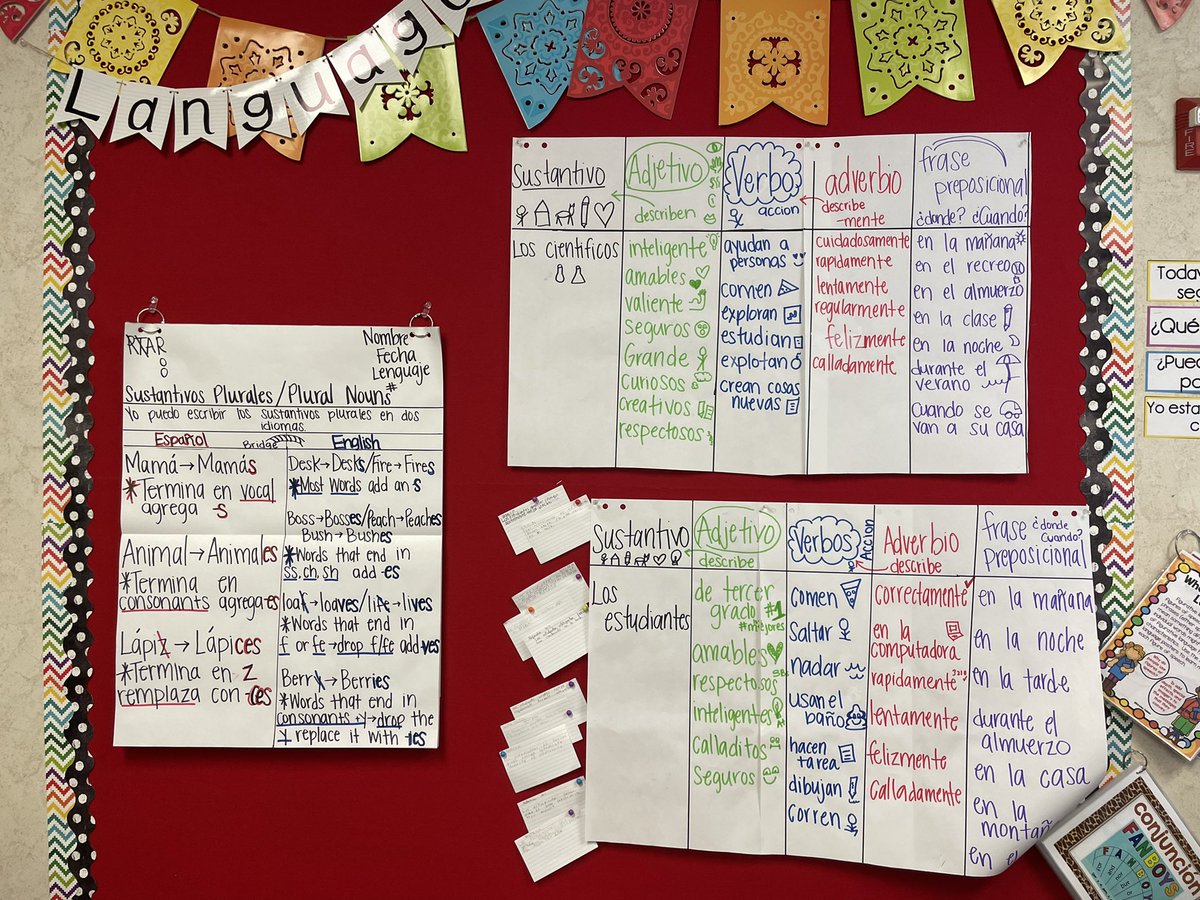 Language
RXAR
Nombre
Fecha
Lenguaje
Sustantivos Plurales/Plural Nouns#
Yo puedo escribir los sustantivos plurales en dos
idiomas.
Español
Bridge
English
Mamá→Mamás
*Termina en vocal
agrega -s
Animal→Animales
*Termina en
consonants agrega-es
Lápiz→Lápices
*Termina en z
remplaza con -ces
Desk→Desks/Fire→Fires
*Most Words add an s
Boss→Bosses/Peach→Peaches
Bush→Bushes
*Words that end in
ss, ch, sh add -es
loaf→loaves/life→lives
*Words that end in
f or fe→drop f/fe add ves
Berry→Berries
*Words that end in
consonants +y→drop the
y replace it with -ies
Sustantivo
Los científicos
Adjetivo
describen
inteligente
amables
valiente
seguros
Grande
curiosos
creativos
respectosos
Verbo
accion
ayudan a
personas
comen
exploran
estudian
explotan
crean cosas
nuevas
adverbio
describe
-mente
cuidadosamente
rapidamente
lentamente
regularmente
felizmente
calladamente
frase
preposicional
¿donde? ¿Cuando?
en la mañana
en el recreo
en el almuerzo
en la clase
en la noche
durante el
verano
cuando se
van a su casa
Sustantivo
Los
estudiantes
Adjetivo
describe
de tercer
grado #1
#mejores
amables
respectosos
inteligentes
Calladitos
Seguros
Verbos
Accion
comen
saltar
nadar
usan el
baño
hacen
tarea
dibujan
corren
Adverbio
describe
correctamente
en la
computadora
rapidamente
lentamente
felizmente
calladamente
frase ¿donde
cuando?
preposicional
en la mañana
en la noche
en la tarde
durante el
almuerzo
en la casa
en la
montaña
en el
FIRE
Todav
¿Qué
¿Pued
Yo esta
conjuncion
FANBOYS